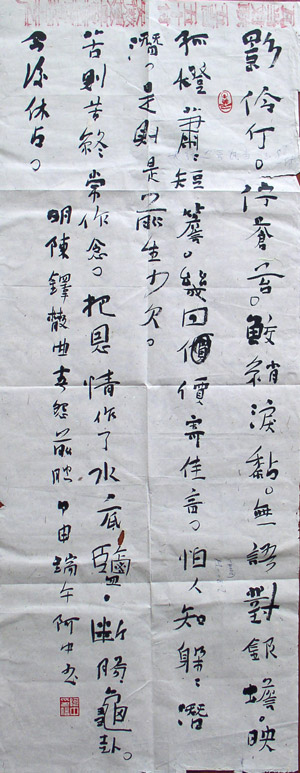 影伶仃。佇蒼苔。鮫綃淚黏。無語對銀蟾。映
孤燈蕭〻短簷。幾回價寄佳音。怕人知躲〻潛
潛。是則是生力欠。
苦則苦終常作念。把恩情作了水底鹽。斷腸龜卦。
休占。
明陳鐸散曲春怨前腔甲申端午阿中書